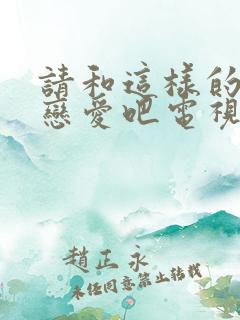 請和這樣的
戀愛吧電視
趙正永
未任同意禁止转載